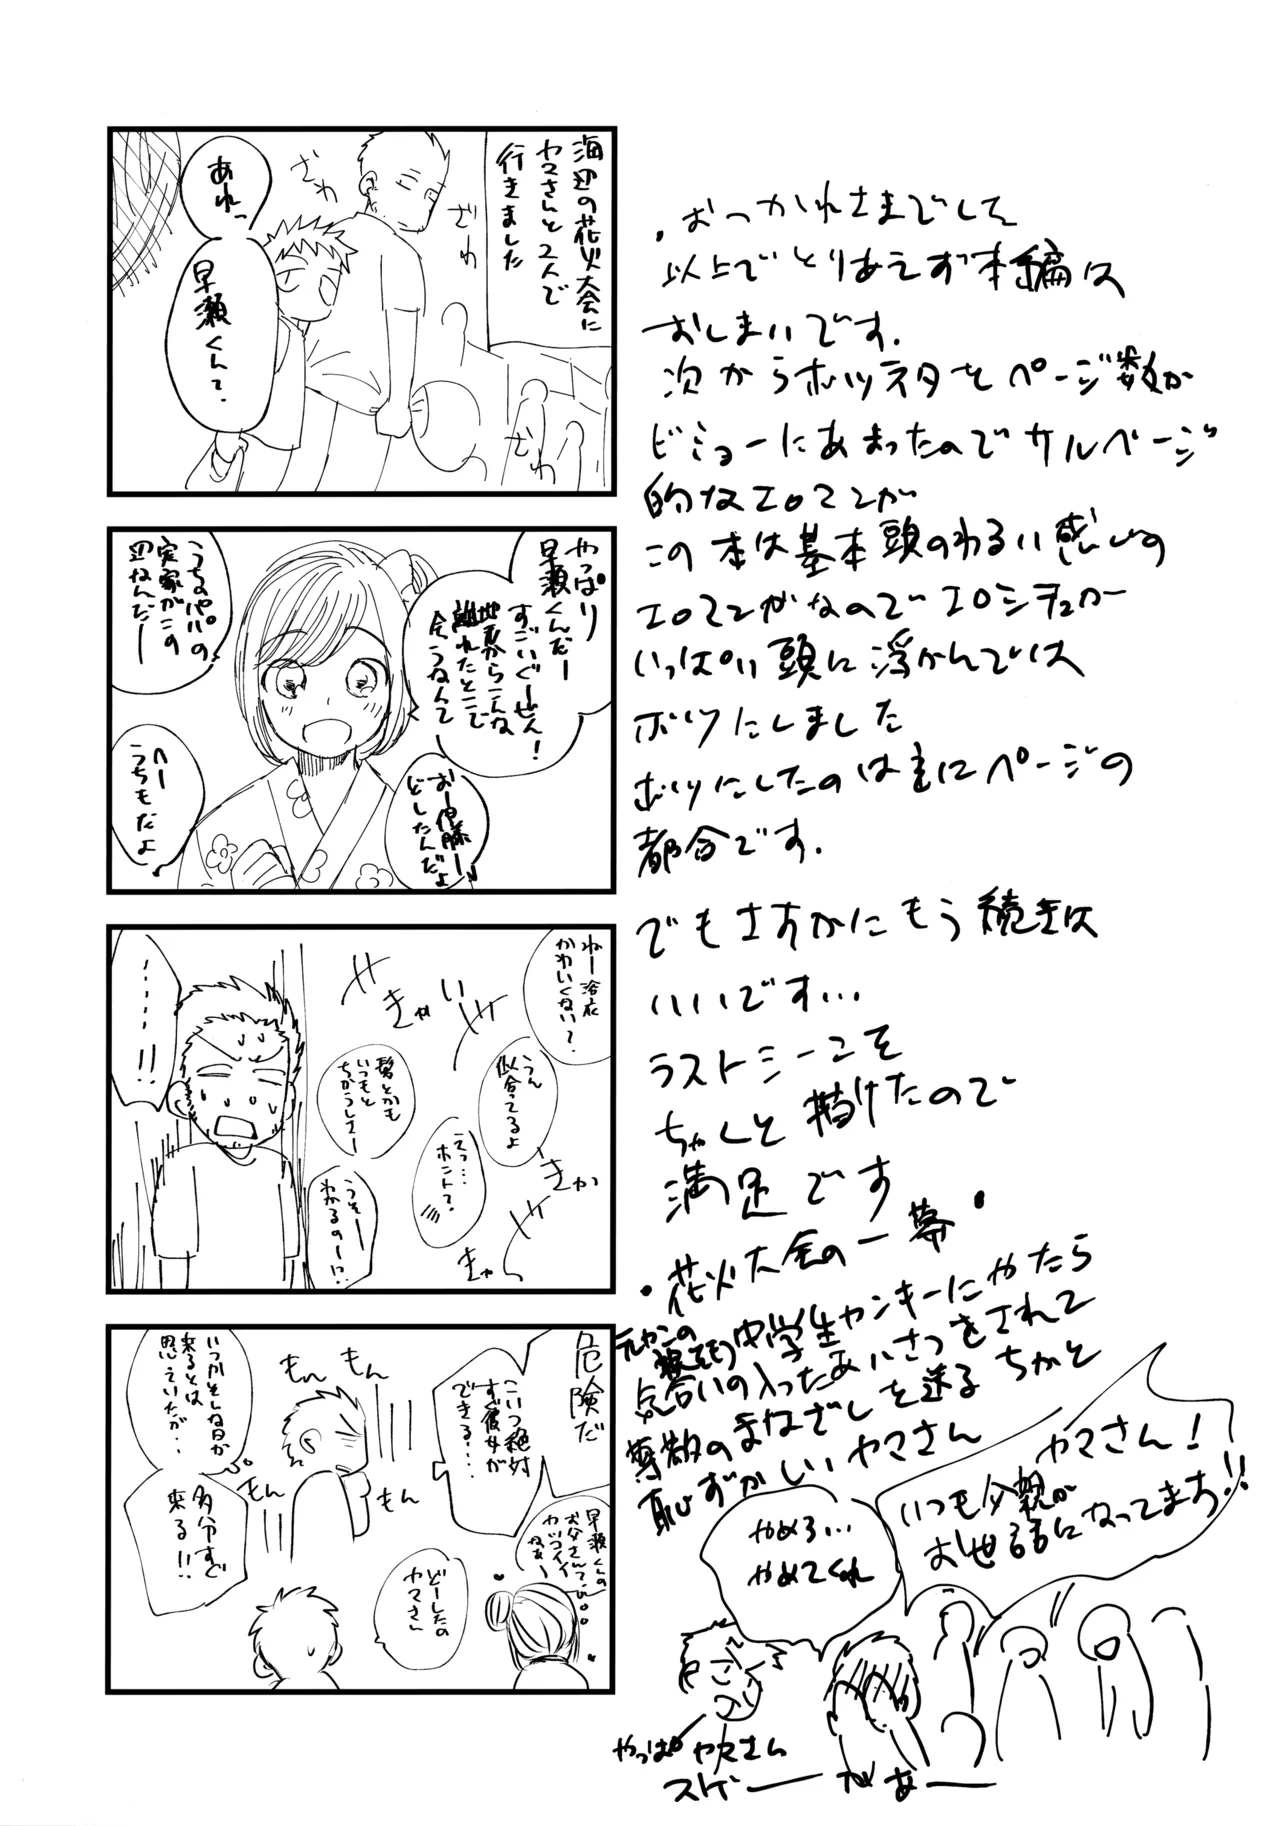 海辺の花火大会に
ヤマさんと2人で
行きました
ざわ
ざわ
ざわ
あれっ
早瀬くんて.
やっぱり
早瀬くんだー
すごいぐーぜん!
地元からこんな
離れたとこで
会うなんて
うちのパパの
実家がこの
辺なんだー
おー伊藤ー
どしたんだよ
へー
うちもだよ
ねー浴衣
かわいくない?
うん
似合ってるよ
髪とかも
いつもと
ちがうしさー
えっ…
ホント?
うそー
わかるのー!?
きゃい
きゃ
きゃ
……!!
危険だ
こいつ絶対
すぐ彼女が
できる….
いつかそんな日が
来るとは
思っていたが..
多分すぐ
来る!!
もん
もん
もん
もん
早瀬くんの
お父さんてば
カッコイイ
なぁー
どーしたの
ヤマさん
・おつかれさまでした
以上でとりあえず本編は
おしまいです.
次からボツネタをページ数が
ビミョーにあまったのでサルベージ
的なエロマンガ
この本は基本頭のわるい感じの
エロマンガなのでエロシチュが
いっぱい頭に浮かんでは
ボツにしました
ボツにしたのは主にページの
都合です.
でもさすがにもう続きは
いいです…
ラストシーンを
ちゃんと描けたので
満足です
・花火大会の一幕・
中学生ヤンキーにやたら
気合いの入ったあいさつをされて
尊敬のまなざしを送るちかと
恥ずかしいヤマさん
ヤマさん!
いつも父親が
お世話になってます!!
やめろ…
やめてくれ
やっぱヤマさん
スゲーがあー